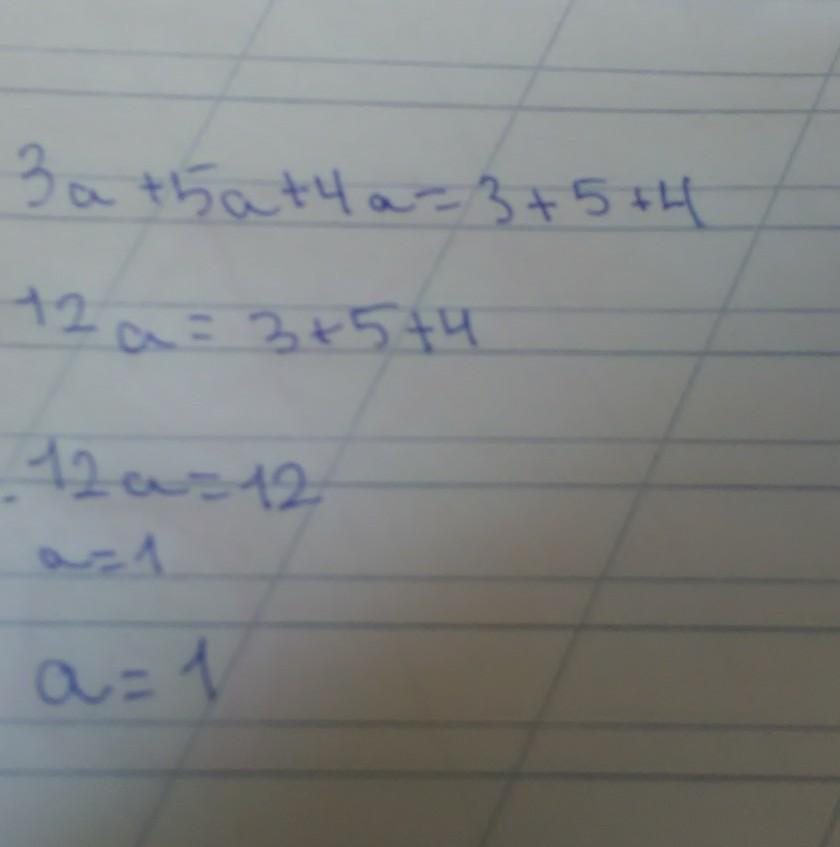 3a+5a+4a=3+5+4
12a=3+5+4
12a=12
a=1
a=1